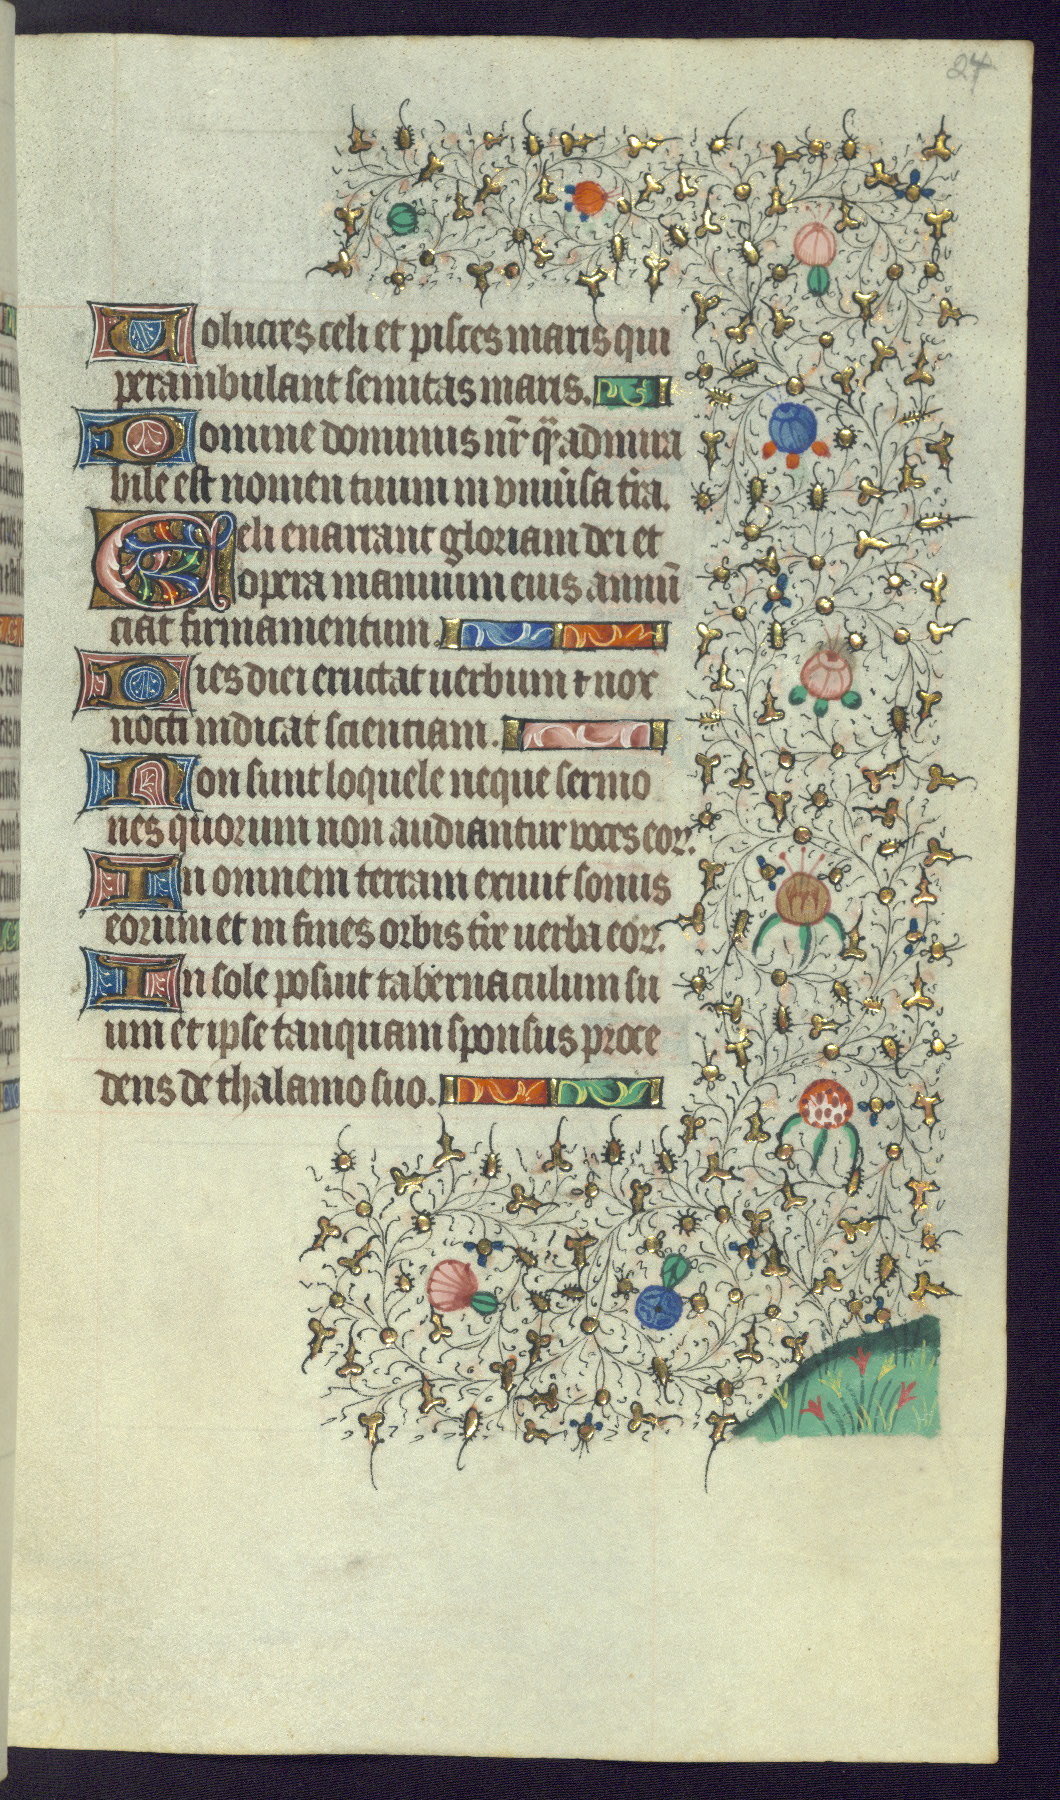 24
Volucres celi et pisces maris qui
perambulant semitas maris.
Domine dominus nr̄ qr̄ admira
bile est nomen tuum in vniũsa tr̃a.
Celi enarrant gloriam dei et
opera manuum eius annũ
ciat firmamentum.
Dies diei eructat uerbum ⁊ nox
nocti indicat scientiam.
Non sunt loquele neque sermo
nes quorum non audiantur voces eoꝝ.
In omnem terram exiuit sonus
eorum et in fines orbis tr̃e uerba eoꝝ.
In sole posuit tabernaculum su
um et ipse tanquam sponsus proce
dens de thalamo suo.